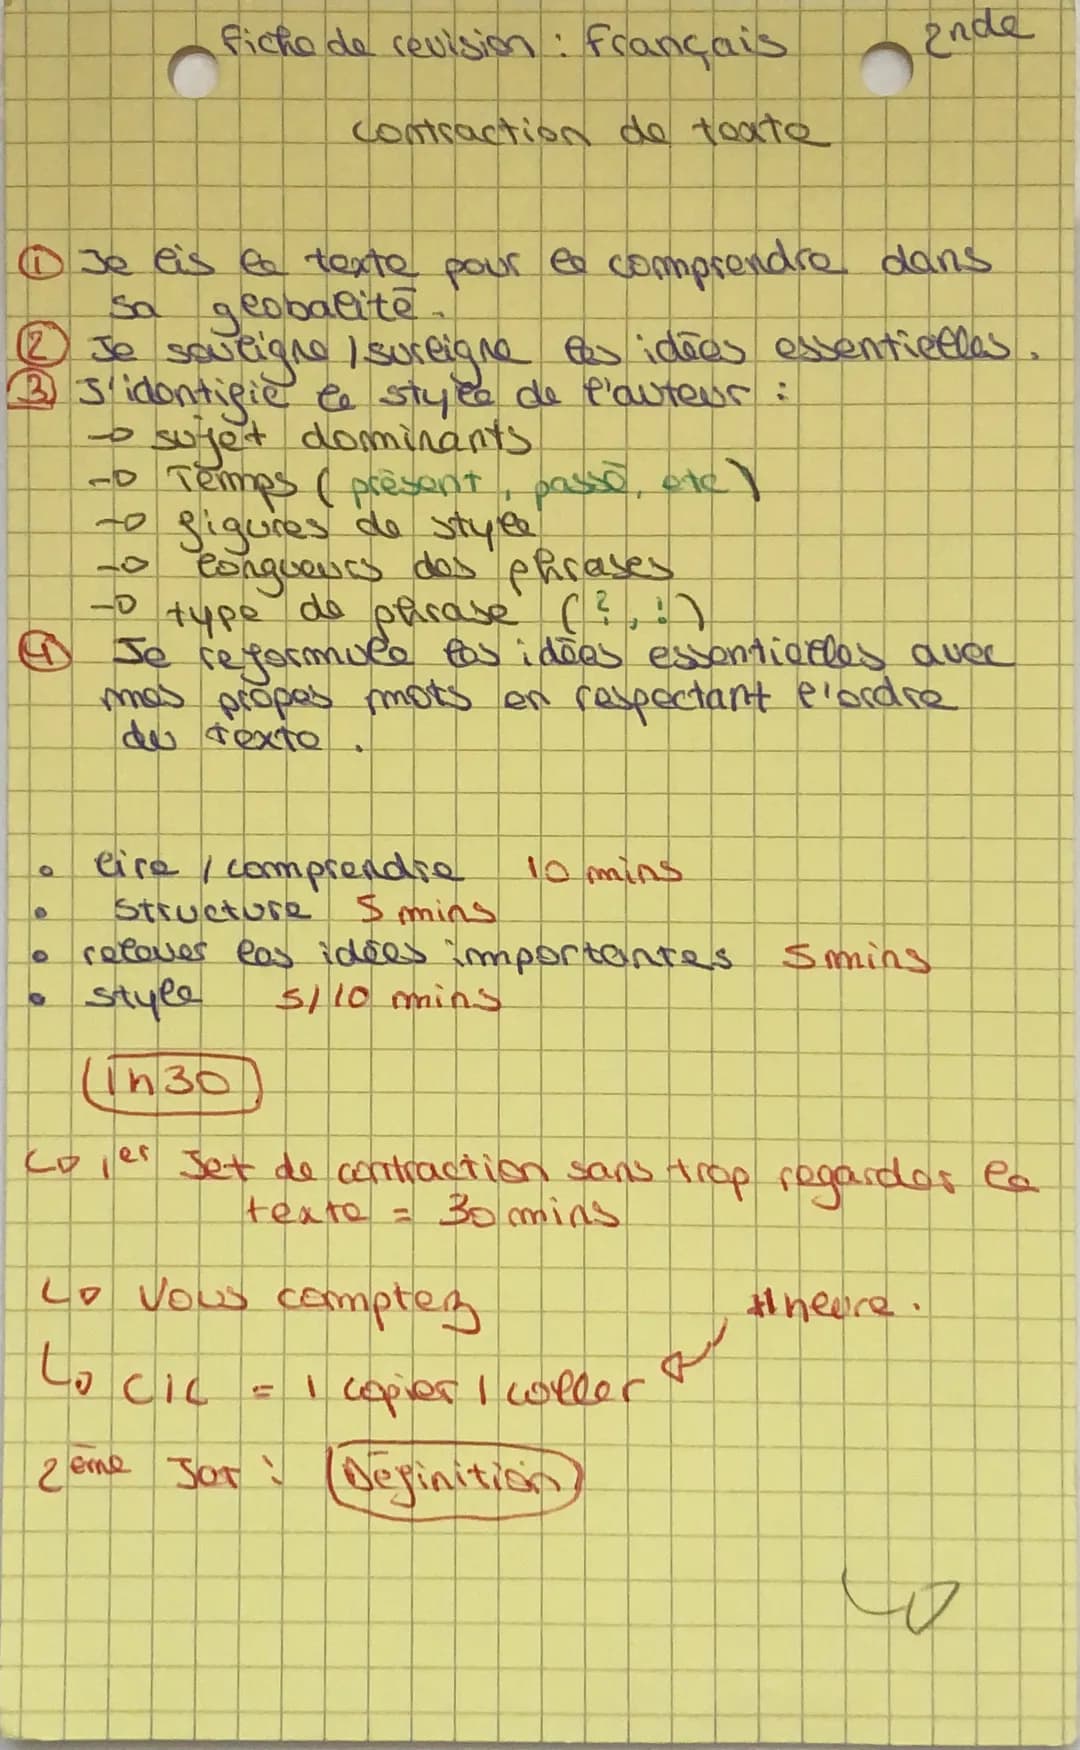 fiche de revision : français 2nde
contraction de texte
① Je lis le texte pour le comprendre dans
sa globalité.
② Je souligne / sureligne les idées essentielles.
③ J'identifie le style de l'auteur :
→ sujet dominants
→ Temps (présent, passé, etc)
→ figures de style
→ longueurs des phrases
→ type de phrase (?, !)
④ Je reformule les idées essentielles avec
mes propes mots en respectant l'ordre
du texte.
• lire / comprendre 10 mins
• structure 5 mins
• relever les idées importantes 5 mins
• style 5/10 mins
1h30
↳ 1er Jet de contraction sans trop regarder le
texte = 30 mins
↳ Vous comptez
1 heure.
↳ C/C = 1 copier / coller
2ème Jet : Définition